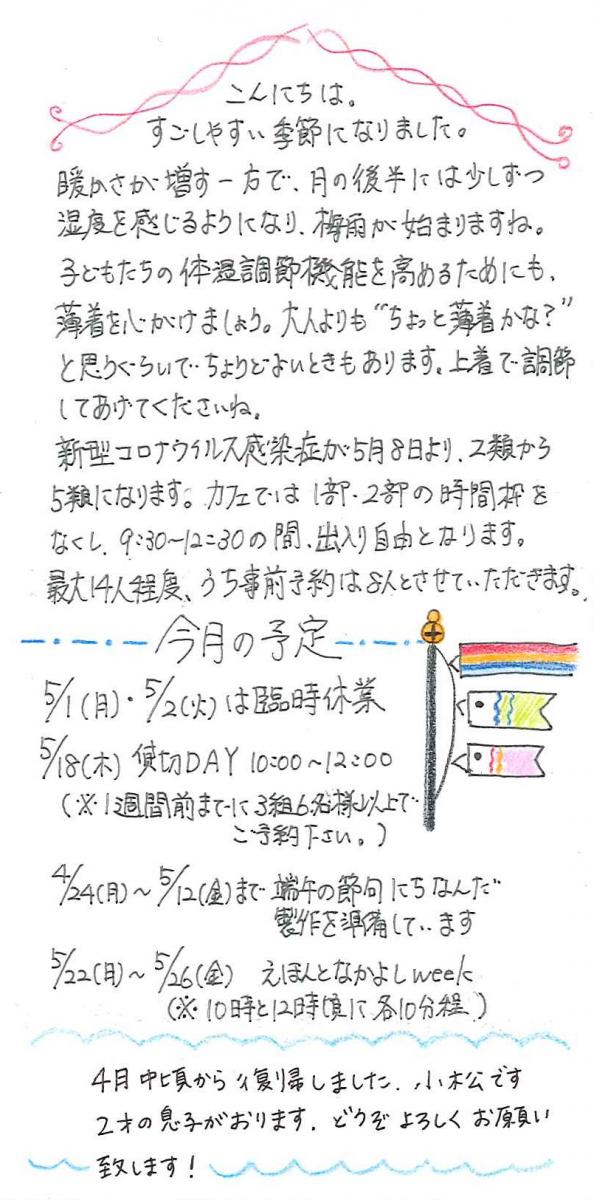 こんにちは。
すごしやすい季節になりました。
暖かさが増す一方で、月の後半には少しずつ
湿度を感じるようになり、梅雨が始まりますね。
子どもたちの体温調節機能を高めるためにも、
薄着を心がけましょう。大人よりも“ちょっと薄着かな？”
と思うぐらいで ちょうどよいときもあります。上着で調節
してあげてくださいね。
新型コロナウイルス感染症が5月8日より、2類から
5類になります。カフェでは 1部・2部の時間枠を
なくし、9:30〜12:30の間、出入り自由となります。
最大14人程度、うち事前予約は8人とさせていただきます。
今月の予定
5/1(月)・5/2(火)は臨時休業
5/18(木) 貸切DAY 10:00〜12:00
(※1週間前までに3組6名様以上で
ご予約下さい。)
4/24(月)〜5/12(金)まで 端午の節句にちなんだ
製作を準備しています
5/22(月)〜5/26(金) えほんとなかよしweek
(※10時と12時頃に各10分程)
4月中頃から復帰しました、小松です
2才の息子がおります。どうぞよろしくお願い
致します！